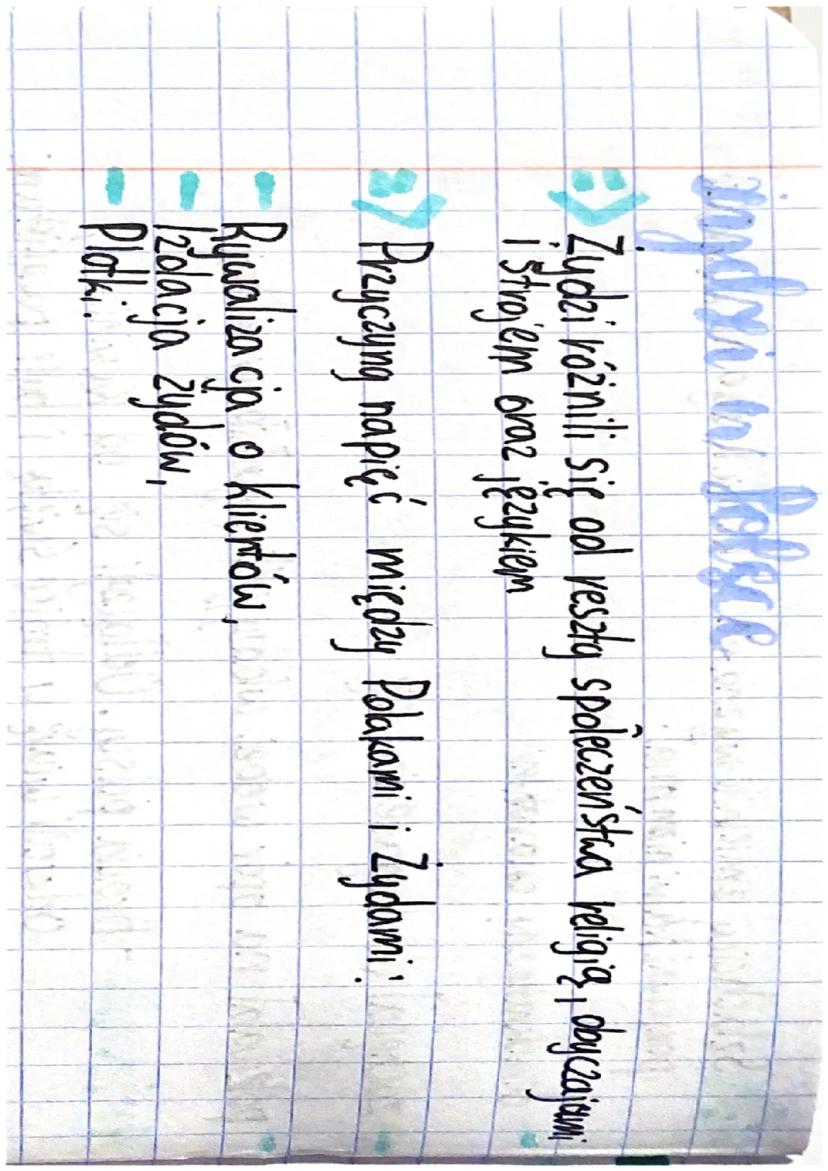 żydzi w Polsce
=> Żydzi różnili się od reszty społeczeństwa religią, obyczajami
i strojem oraz językiem
=> Przyczyną napięć między Polakami i Żydami:
- Rywalizacja o klientów,
- Izolacja żydów,
- Plotki.